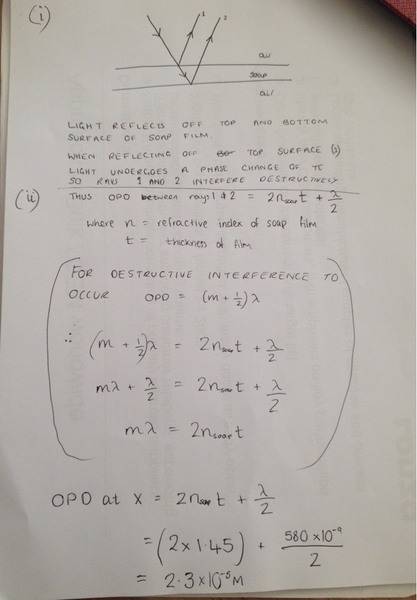 (i)
1 2
air
soap
air
LIGHT REFLECTS OFF TOP AND BOTTOM
SURFACE OF SOAP FILM.
WHEN REFLECTING OFF TOP SURFACE (1)
LIGHT UNDERGOES A PHASE CHANGE OF π
SO RAYS 1 AND 2 INTERFERE DESTRUCTIVELY
(ii) THUS OPD between rays 1 & 2 = 2n_soap t + λ/2
where n = refractive index of soap film
t = thickness of film
FOR DESTRUCTIVE INTERFERENCE TO
OCCUR OPD = (m + 1/2)λ
∴ (m + 1/2)λ = 2n_soap t + λ/2
mλ + λ/2 = 2n_soap t + λ/2
mλ = 2n_soap t
OPD at X = 2n_soap t + λ/2
= (2×1.45) + 580×10⁻⁹/2
= 2.3×10⁻⁵M